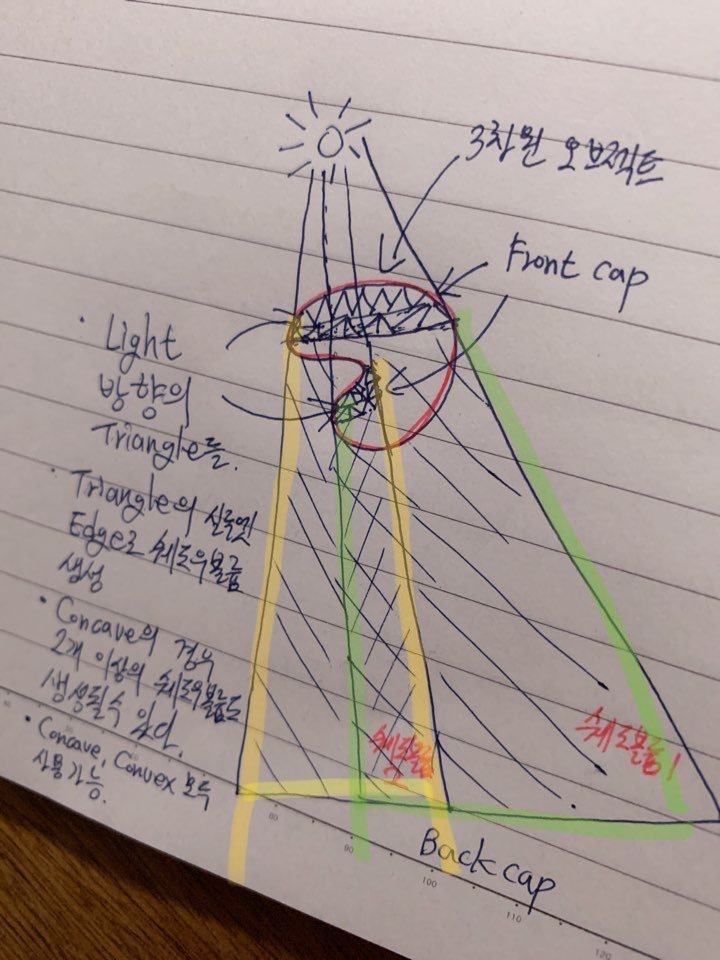 3차원 오브젝트
Front cap
· Light
방향의
Triangle들.
· Triangle의 실루엣
Edge로 쉐도우볼륨
생성
· Concave의 경우
2개 이상의 쉐도우볼륨도
생성될수 있다.
· Concave, Convex 모두
사용가능.
쉐도우볼륨
2
쉐도볼륨1
Back cap
80
90
100
110
120